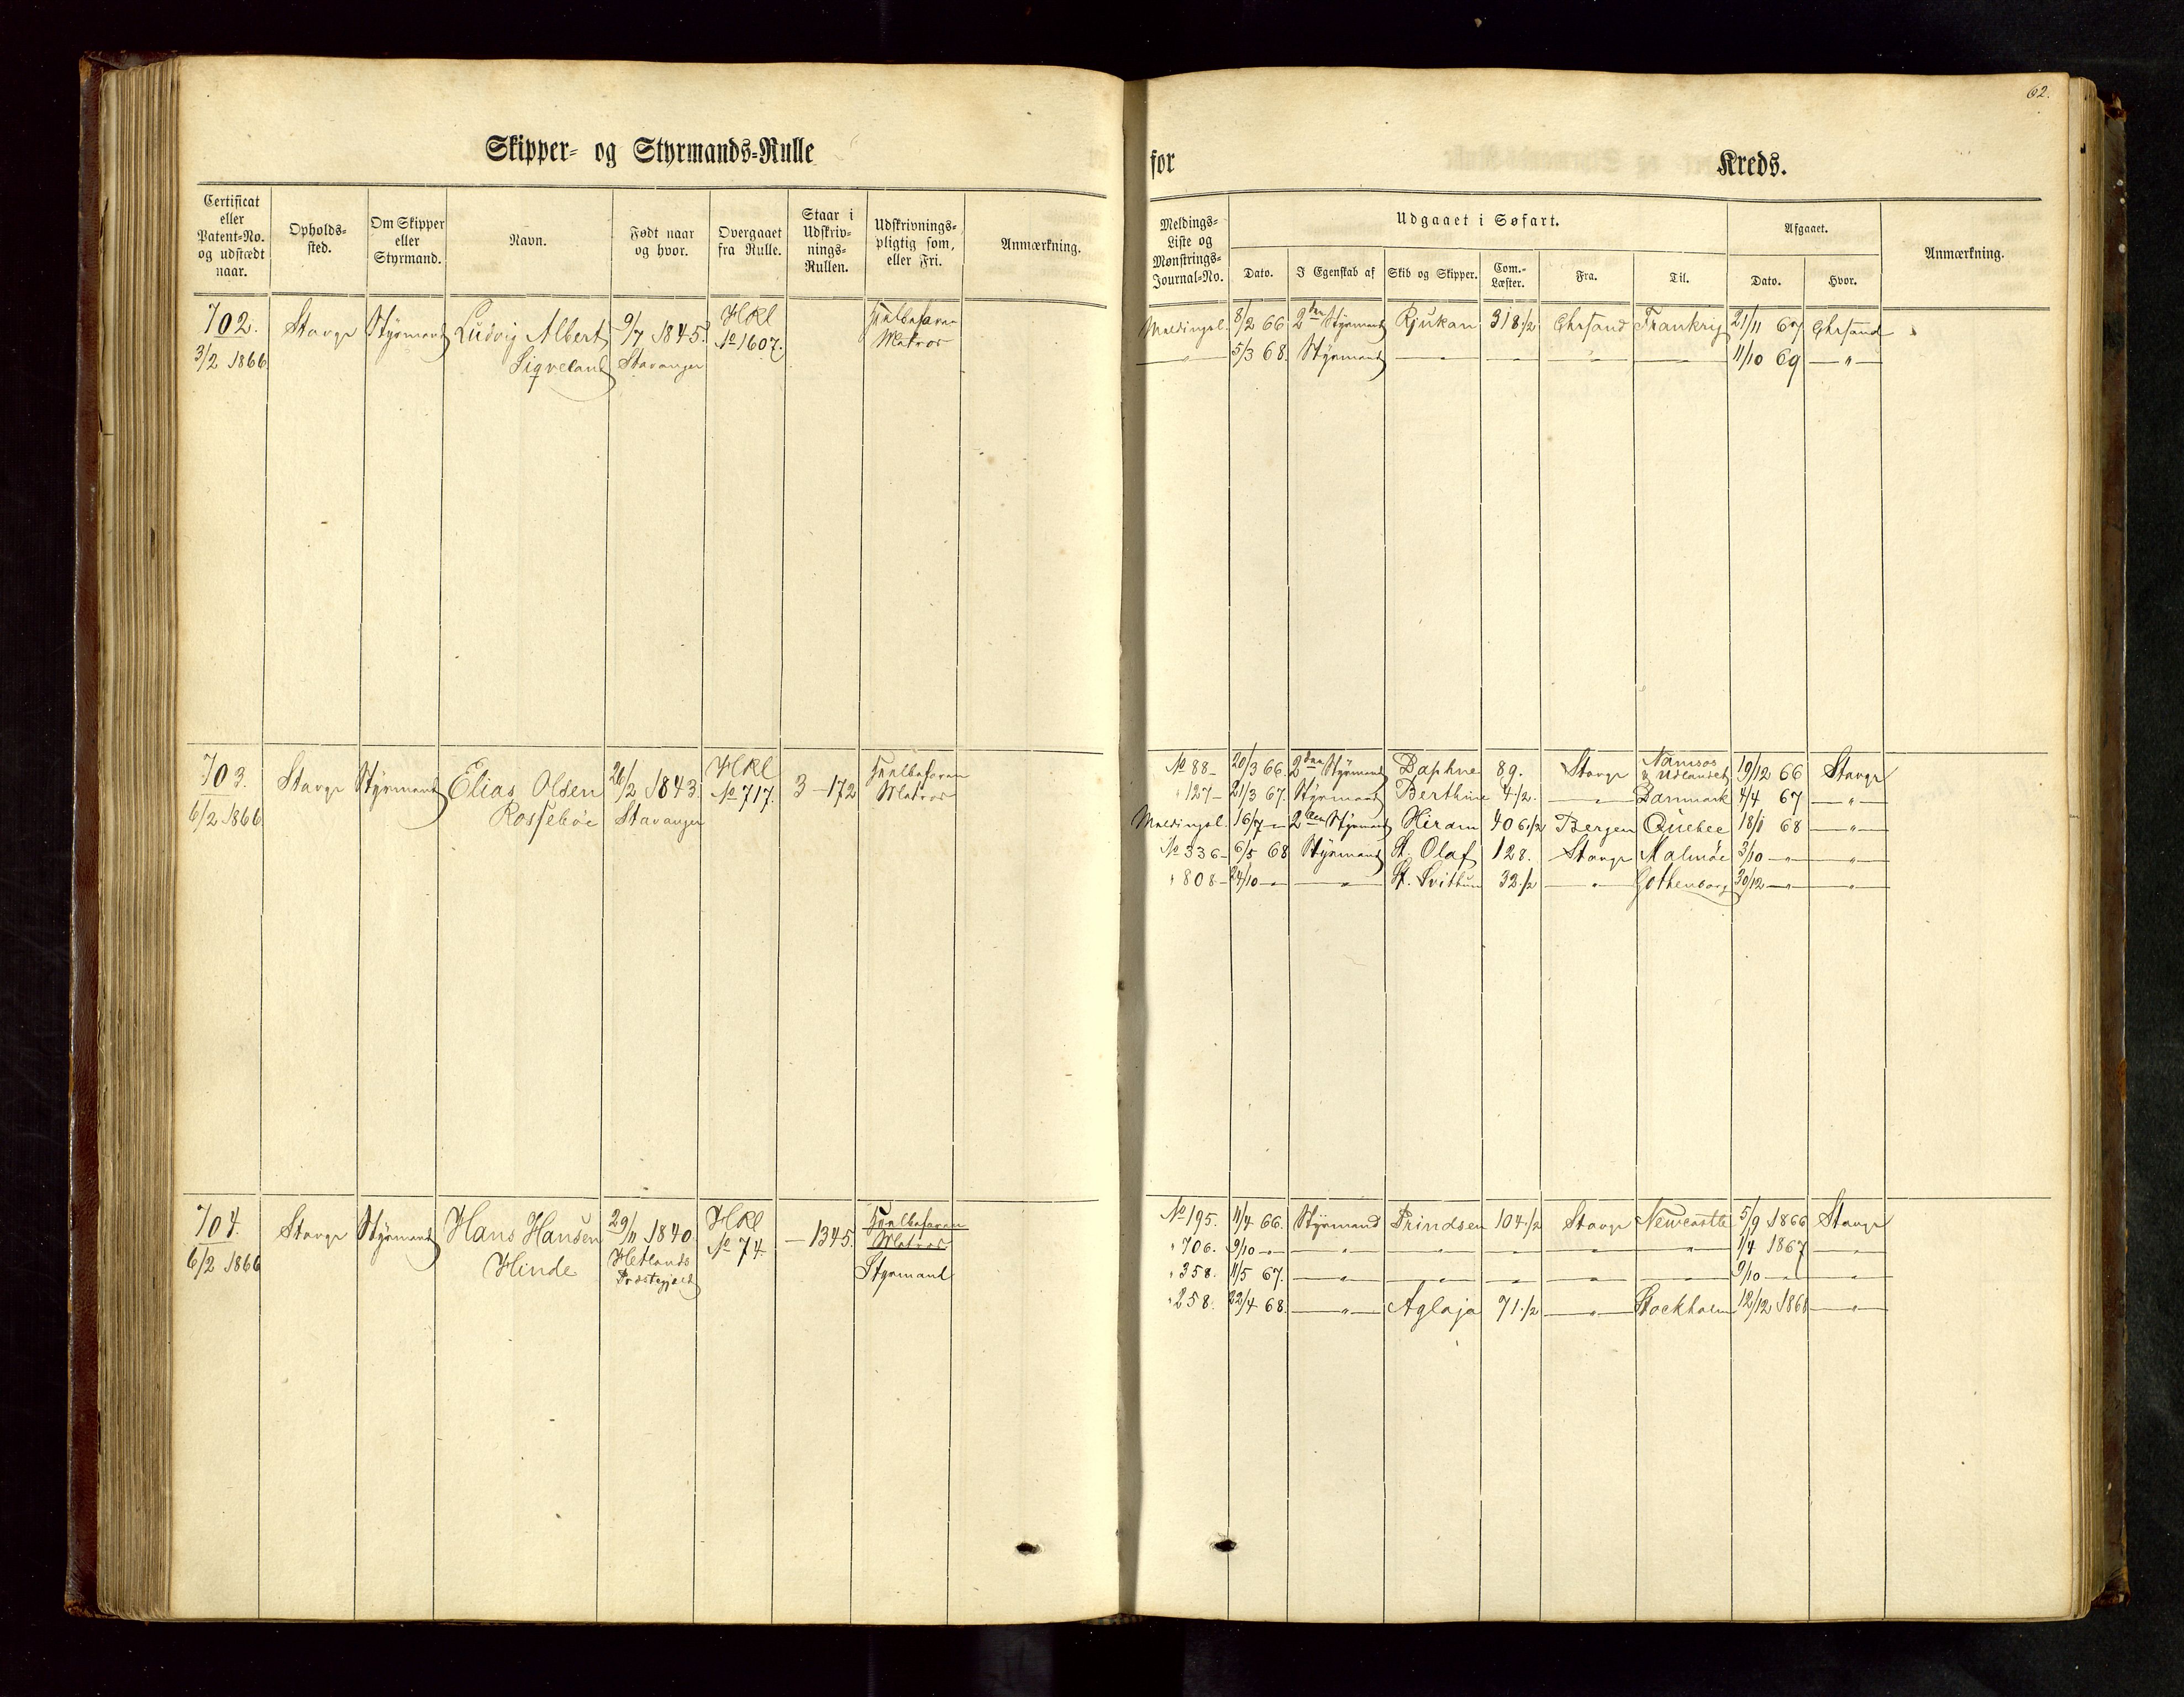 62.
Skipper- og Styrmands-Rulle
for Kreds.
Certificat eller Patent-No. og udstædt naar.
Opholds-sted.
Om Skipper eller Styrmand.
Navn.
Født naar og hvor.
Overgaaet fra Rulle.
Staar i Udskriv-nings-Rullen.
Udskrivnings-pligtig som, eller Fri.
Anmærkning.
Meldings-Liste og Mønstrings-Journal-No.
Udgaaet i Søfart.
Dato.
I Egenskab af
Skib og Skipper.
Com.-Læster.
Fra.
Til.
Afgaaet.
Dato.
Hvor.
Anmærkning.
702. Stavgr Styrmand Ludvig Albert 9/7 1845. HKl Hvalbefaren
3/2 1866 Sigveland Stavanger No 1607. Matros
Meldingsl. 8/2 66 2den Styrmand Rjukan 318 1/2 Chrsand Frankrig 21/11 67 Chrsand
— " — 5/3 68. Styrmand — — — " — — 11/10 69 — " —
703. Stavgr Styrmand Elias Olsen 26/2 1843. HKl 3 — 172 Hvalbefaren
6/2 1866 Rossebøe Stavanger No 717. Matros
No 88 — 20/3 66. 2den Styrmand Daphne 89. Stavgr Namsos & Udlandet 19/12 66 Stavgr
" 127 — 21/3 67. Styrmand Berthine 4 1/2. — " — Danmark 4/4 67 — " —
Meldingsl. 16/7 — " — 2den Styrmand Hiram 406 1/2 Bergen Quebec 18/1 68 — " —
No 336 — 6/5 68 Styrmand St. Olaf 128. Stavgr Malmöe 3/10 — " — — " —
" 808 — 24/10 — " — — " — St. Svithun 32 1/2 — " — Gothenborg 30/12 — " — — " —
704. Stavgr Styrmand Hans Hansen 29/11 1840. HKl — 1345. Hvalbefaren
6/2 1866 Hinde Hetlands Præstegjæld No 74. Matros
Styrmand
No 195. 11/4 66. Styrmand Prindsen 104 1/2 Stavgr Newcastle 5/9 1866 Stavgr
" 706. 9/10 — " — — " — — " — — " — — " — — " — 1/4 1867 — " —
" 358. 11/5 67. — " — — " — — " — — " — — " — 9/10 — " — — " —
" 258. 22/4 68. — " — Aglaja 71 1/2 — " — Stockholm 12/12 1868 — " —